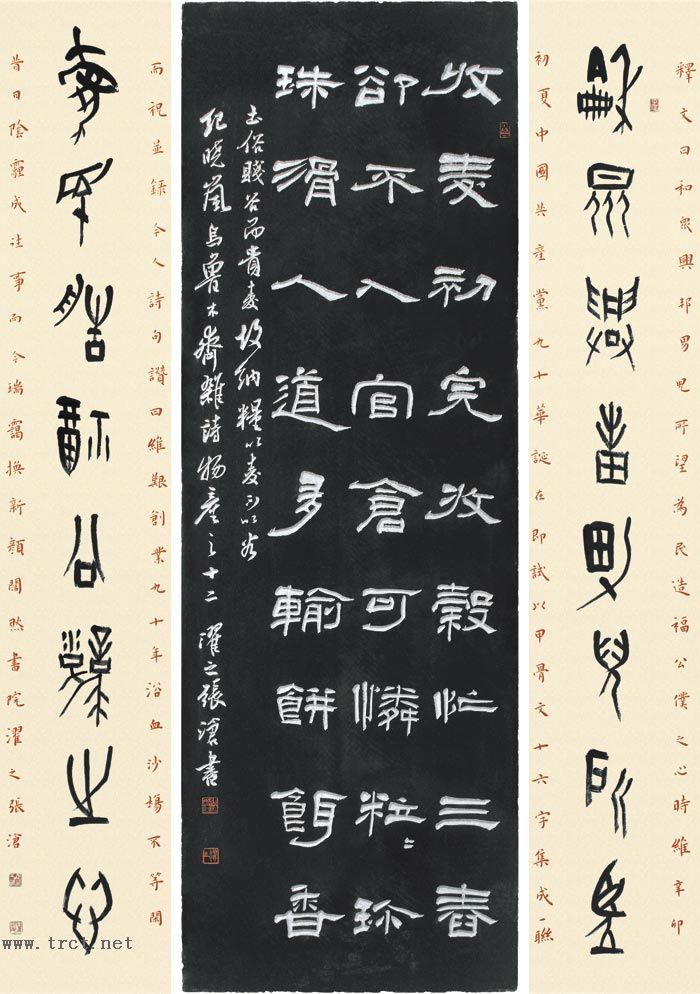 釋文曰和衆興邦男兒所望為民造福公僕之心時維辛卯
龢衆興邦男兒所望
初夏中國共產黨九十華誕在即試以甲骨文十六字集成一聯
收麦初完收穀忙三舂
卻不入官倉可憐粒々珎
珠滑人道多輸餅餌香
土俗賤谷而貴麦故納糧以麦不以谷
紀曉嵐烏魯木齊雜詩物產之十二 濯之張滄書
而祝並錄今人詩句讚曰維艱創業九十年浴血沙場不等閑
為民造福公僕之心
昔日陰霾成往事而今瑞靄換新顏闇然書院濯之張滄
www.trct.net